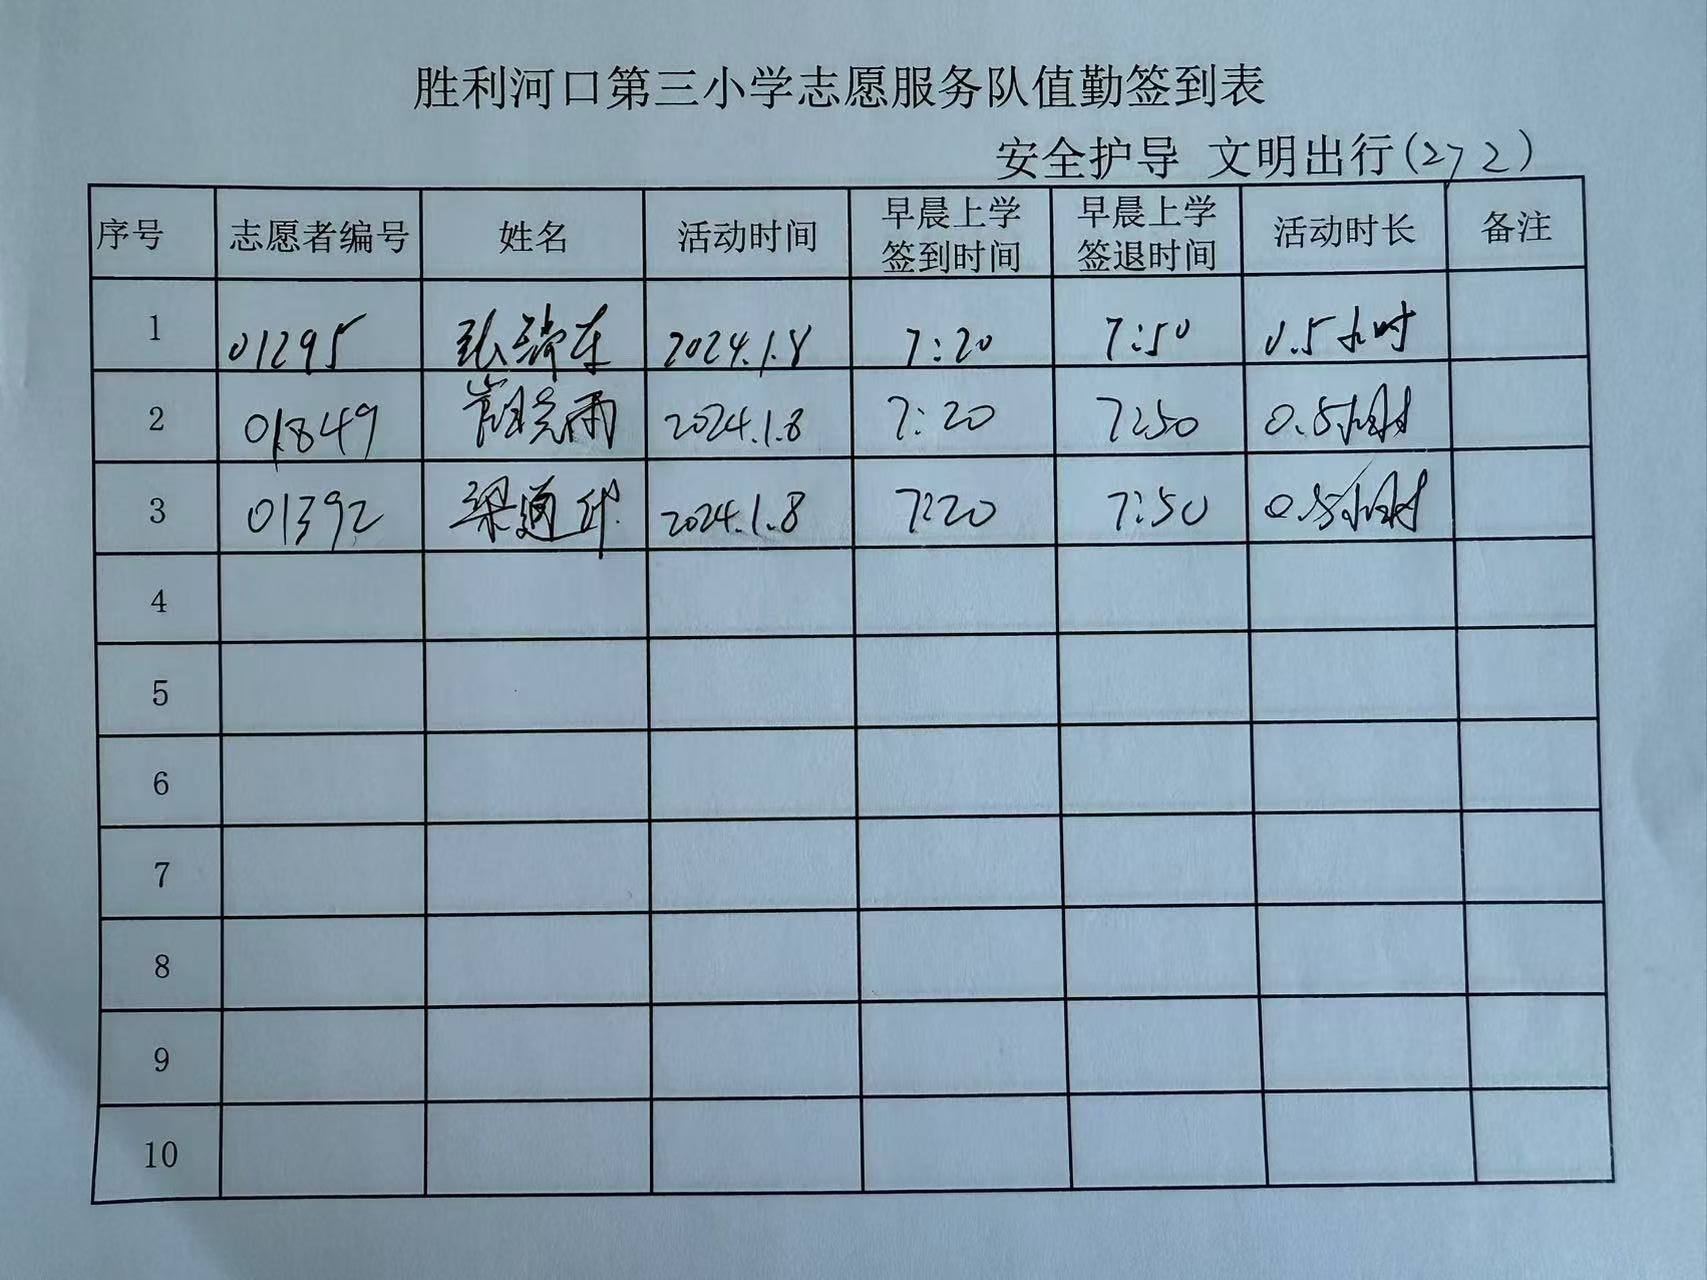 胜利河口第三小学志愿服务队值勤签到表
安全护导 文明出行(272)
序号 志愿者编号 姓名 活动时间 早晨上学签到时间 早晨上学签退时间 活动时长 备注
1 01295 张瑞东 2024.1.8 7:20 7:50 0.5小时
2 01849 崔晓雨 2024.1.8 7:20 7:50 0.5小时
3 01392 梁通 2024.1.8 7:20 7:50 0.5小时
4
5
6
7
8
9
10